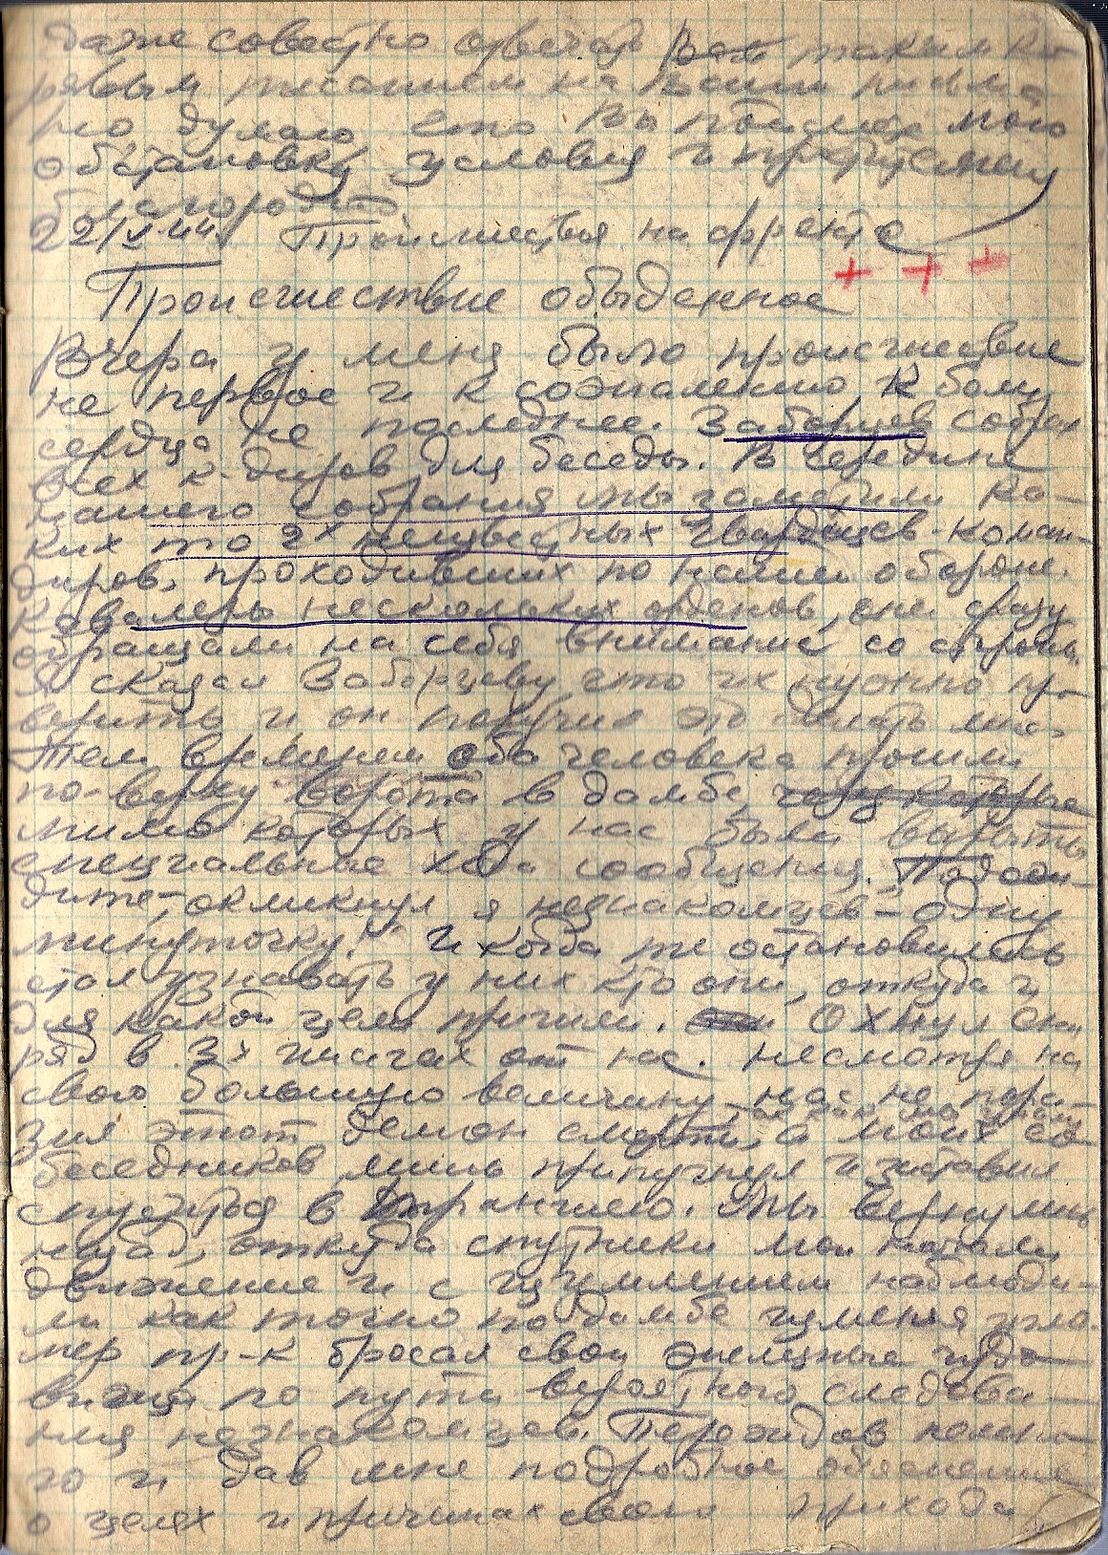 даже совестно отвечать Вам таким ко-
рявым писанием на Ваши письма
но думаю что Вы поймете мою
обстановку условия и
22/VII 44. Происшествия на фронте
+ + +
Происшествие обыденное
Вчера у меня было происшествие
не первое и к сожалению, к боли
сердца не последнее. Заборцев собрал
всех к-диров для беседы. В середине
нашего собрания мы заметили ка-
ких то 2х неизвестных гвардейцев-коман-
диров, проходивших по нашей обороне.
Кавалеры нескольких орденов, они сразу
обращали на себя внимание со стороны.
Я сказал Заборцеву, что их нужно про-
верить и он поручил это сделать мне.
Тем временем оба человека прошли
по-верху ворота в дамбе,
мимо которых у нас были вырыты
специальные хода сообщения. "Подож-
дите-, окликнул я незнакомцев - одну
минуточку!" И когда те остановились
стал узнавать у них кто они, откуда и
для какой цели пришли. Охнул сна-
ряд в 3х шагах от нас. Несмотря на
свою большую величину нас не пора-
зил этот демон смерти, а моих со-
беседников, лишь припугнул и заставил
спуститься в траншею. Мы вернулись
назад, откуда спутники мои начали
движение и с изумлением наблюда-
ли как точно по дамбе изменяя угло-
мер пр-к бросал свои
по пути вероятного следова-
ния незнакомцев. Переждав немно-
го и дав мне подробное объяснение
о целях и причинах своего прихода